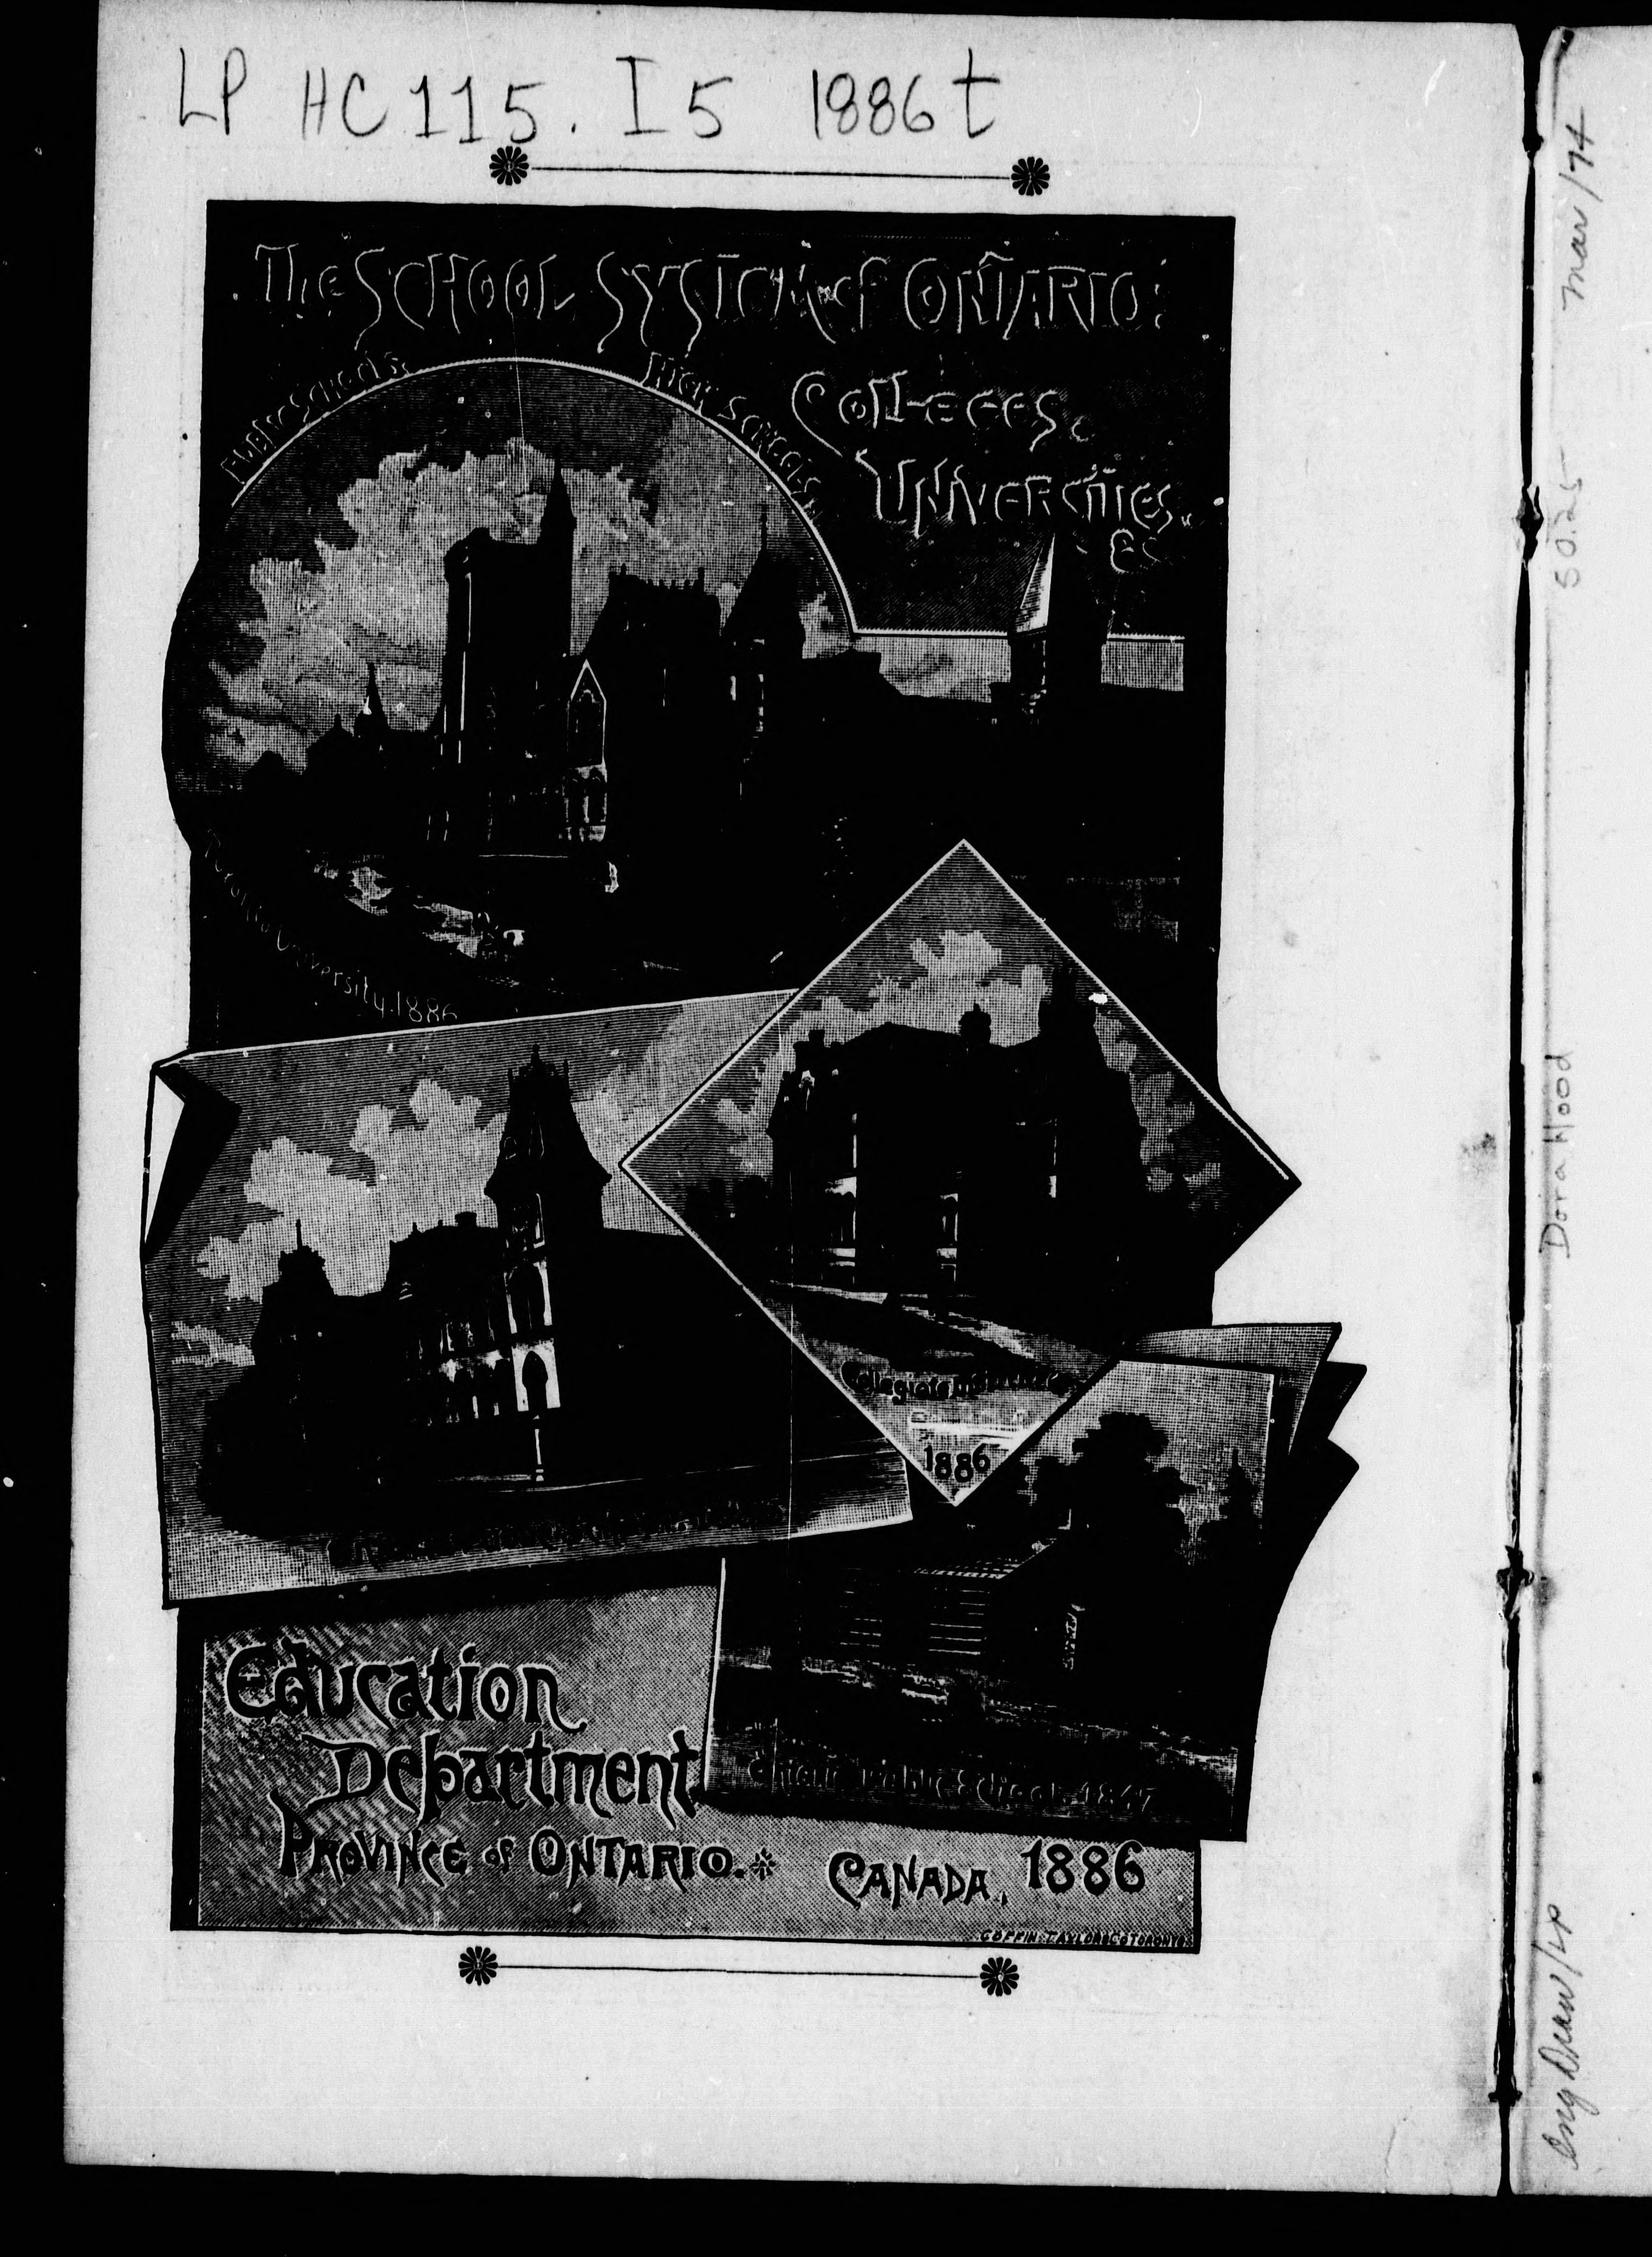 LP HC 115. I5 1886t
The SCHOOL SYSTEM of ONTARIO.
PUBLIC SCHOOLS.
HIGH SCHOOLS.
COLLEGES.
UNIVERSITIES.
&c
Toronto University. 1886
Collegiate
1886
Public School, 1847
Education
Department.
PROVINCE OF ONTARIO.* CANADA, 1886
COFFIN TAYLOR & CO TORONTO
Mar/74
50.25
Dora Hood